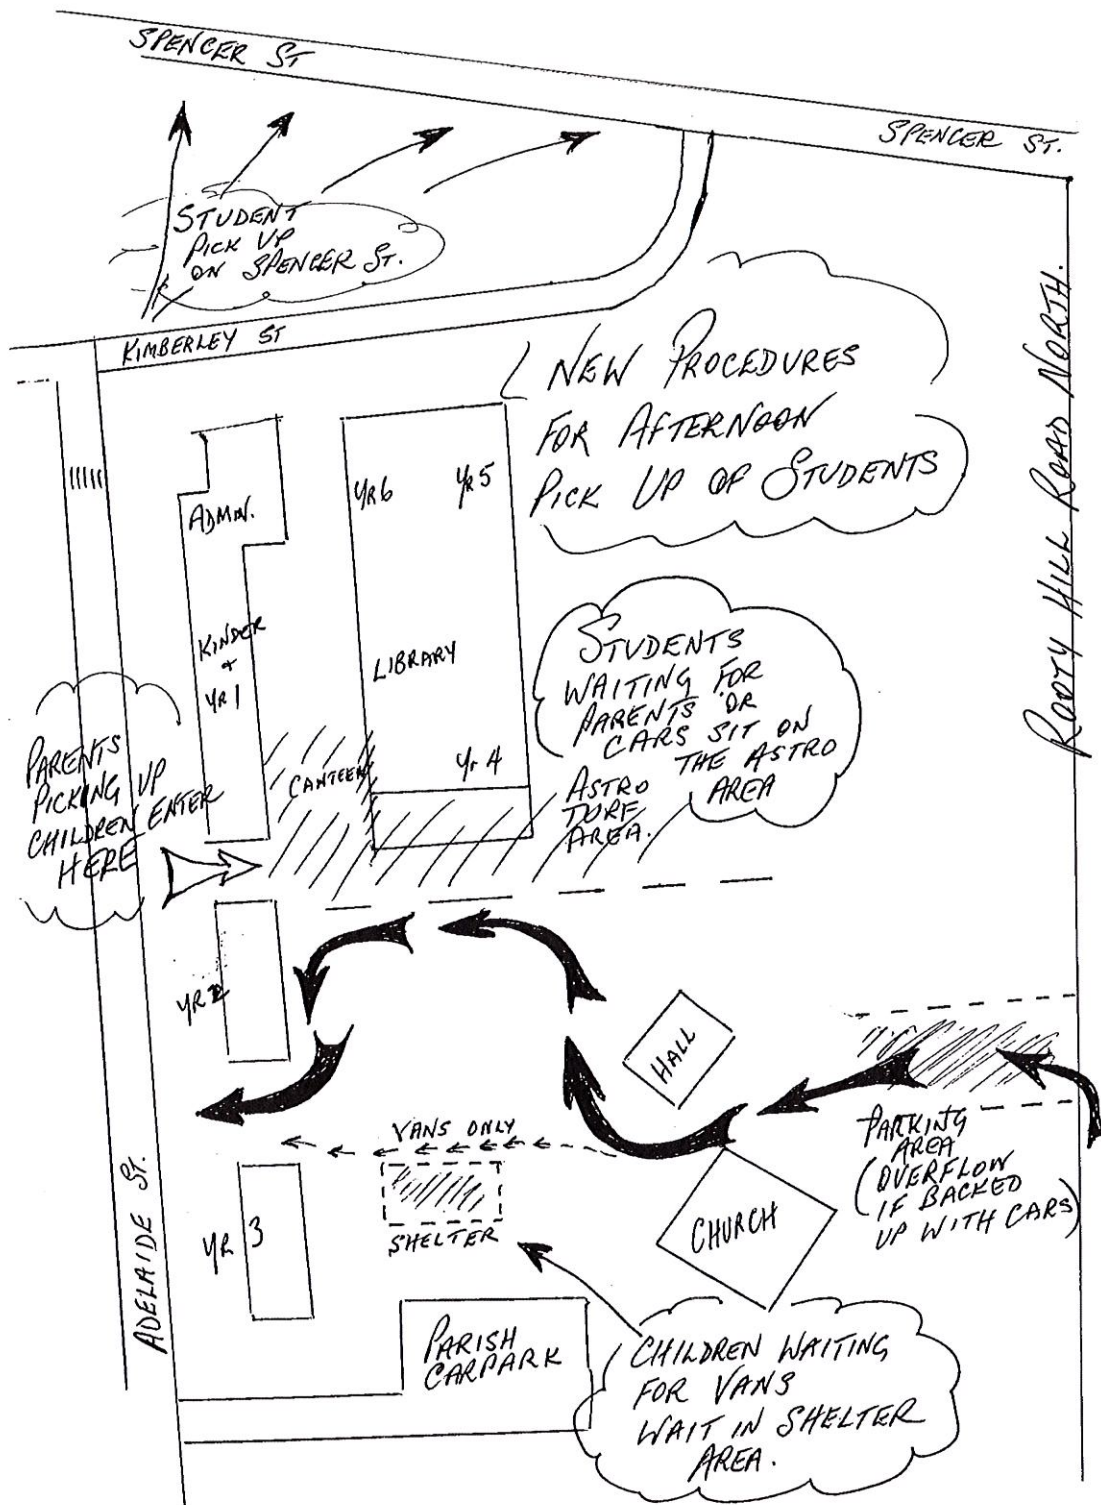 SPENCER ST
SPENCER ST.
STUDENT
PICK UP
ON SPENCER ST.
KIMBERLEY ST
NEW PROCEDURES
FOR AFTERNOON
PICK UP OF STUDENTS
ROOTY HILL ROAD NORTH.
ADMIN.
YR6
YR5
KINDER
+
YR1
LIBRARY
STUDENTS
WAITING FOR
PARENTS OR
CARS SIT ON
THE ASTRO
AREA
PARENTS
PICKING UP
CHILDREN ENTER
HERE
CANTEEN
Yr 4
ASTRO
TURF
AREA.
YR 2
HALL
VANS ONLY
PARKING
AREA
(OVERFLOW
IF BACKED
UP WITH CARS)
SHELTER
CHURCH
YR 3
ADELAIDE ST.
PARISH
CARPARK
CHILDREN WAITING
FOR VANS
WAIT IN SHELTER
AREA.